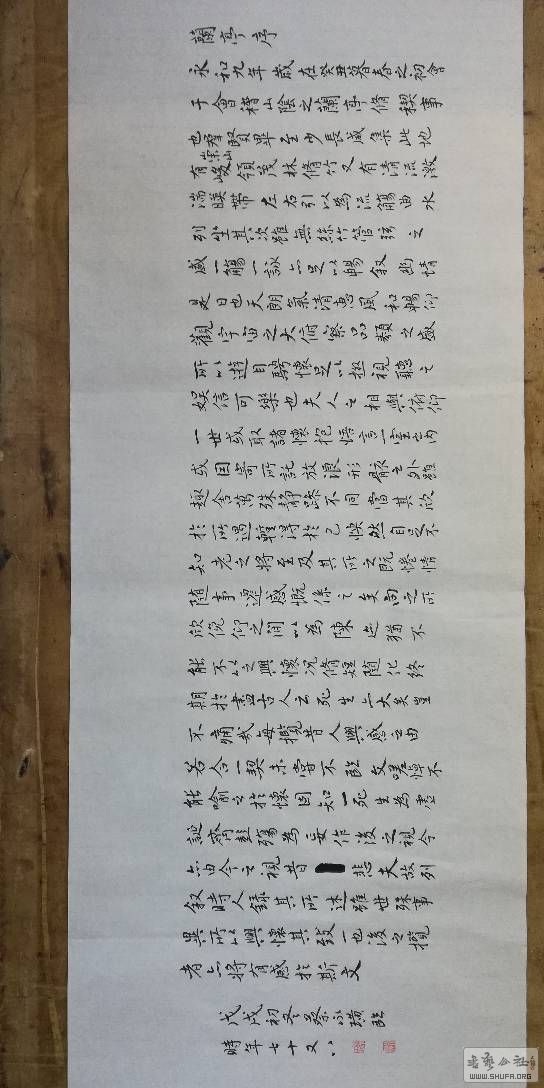 蘭亭序
永和九年歲在癸丑暮春之初會
于會稽山陰之蘭亭脩稧事
也羣賢畢至少長咸集此地
有崇山峻領茂林脩竹又有清流激
湍暎帶左右引以為流觴曲水
列坐其次雖無絲竹管弦之
盛一觴一詠亦足以暢叙幽情
是日也天朗氣清惠風和暢仰
觀宇宙之大俯察品類之盛
所以遊目騁懷足以極視聽之
娛信可樂也夫人之相與俯仰
一世或取諸懷抱悟言一室之內
或因寄所託放浪形骸之外雖
趣舍萬殊靜躁不同當其欣
於所遇蹔得於己怏然自足不
知老之將至及其所之既惓情
隨事遷感慨係之矣向之所
欣俛仰之閒以為陳迹猶不
能不以之興懷況脩短隨化終
期於盡古人云死生亦大矣豈
不痛哉每攬昔人興感之由
若合一契未嘗不臨文嗟悼不
能喻之於懷固知一死生為虛
誕齊彭殤為妄作後之視今
亦由今之視昔悲夫故列
叙時人錄其所述雖世殊事
異所以興懷其致一也後之攬
者亦將有感於斯文
戊戌初冬蔡永臨
時年七十又八
公社
WWW.SHUFA.ORG